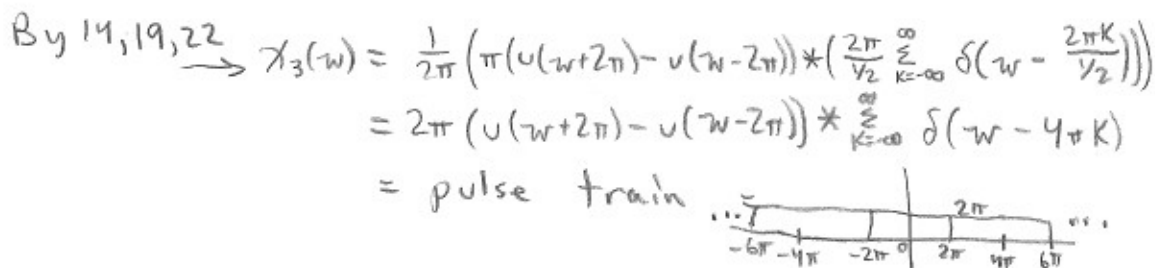 By 14,19,22 → X₃(w) = 1/2π (π(u(w+2π) - u(w-2π)) * (2π/½ ∑_{k=-∞}^{∞} δ(w - 2πk/½)))
= 2π (u(w+2π) - u(w-2π)) * ∑_{k=-∞}^{∞} δ(w - 4πk)
= pulse train
... 2π ...
-6π -4π -2π 0 2π 4π 6π